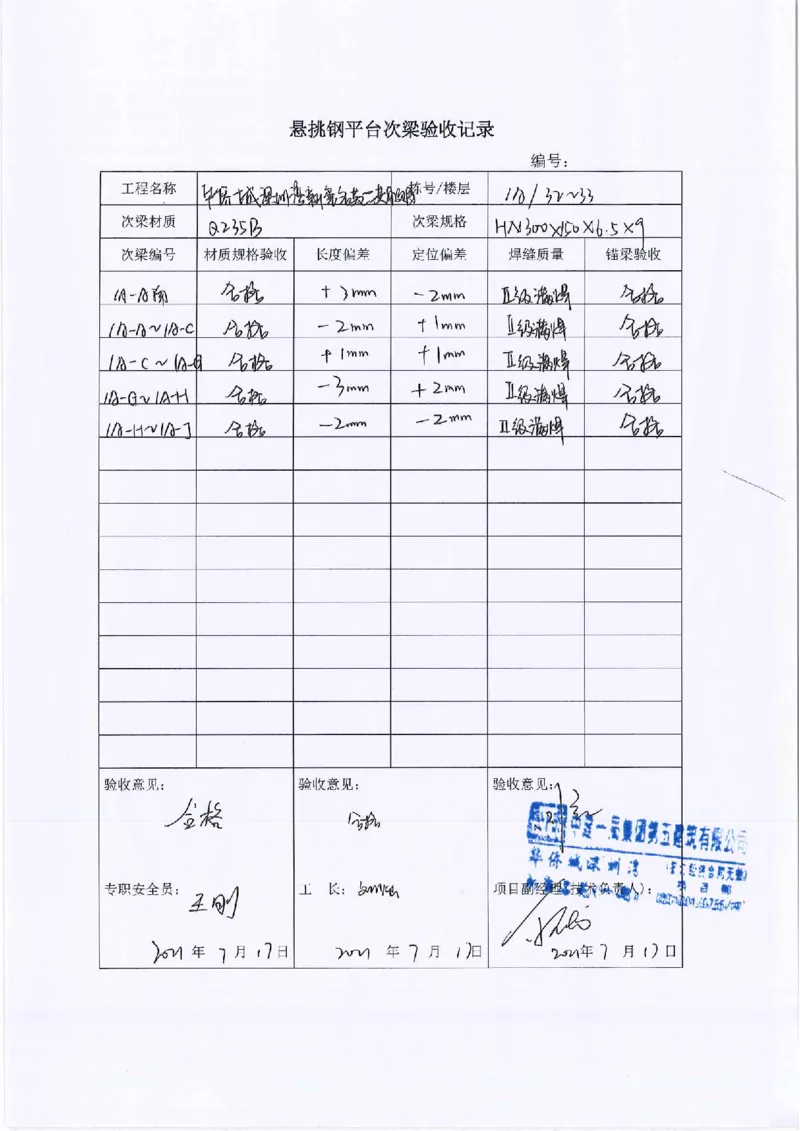 悬挑钢平台次梁验收记录
编号：
工程名称 栋号/楼层 1A/32~33
次梁材质 Q235B 次梁规格 HN300×150×6.5×9
次梁编号 材质规格验收 长度偏差 定位偏差 焊缝质量 锚梁验收
1A-A 合格 +3mm -2mm Ⅱ级满焊 合格
1A-A~1A-C 合格 -2mm +1mm Ⅱ级满焊 合格
1A-C~1A-G 合格 +1mm +1mm Ⅱ级满焊 合格
1A-G~1A-H 合格 -3mm +2mm Ⅱ级满焊 合格
1A-H~1A-J 合格 -2mm -2mm Ⅱ级满焊 合格
验收意见： 验收意见： 验收意见：
合格 合格
中建一局集团第五建筑有限公司
华侨城深圳湾
专职安全员： 王刚 工 长： 项目副经理（技术负责人）：
2021年7月17日 2021年7月17日 2021年7月17日